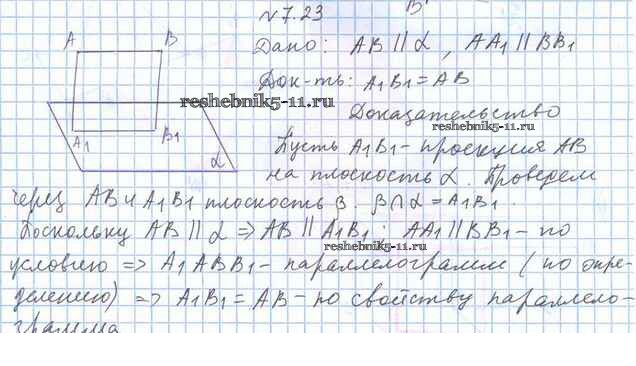 № 7.23
A B
Дано: AB || α, AA1 || BB1
Док-ть: A1B1 = AB
reshebnik5-11.ru
Доказательство
reshebnik5-11.ru
A1 B1
α
Пусть A1B1 - проекция AB
на плоскость α. Проведем
через AB и A1B1 плоскость β. β∩α = A1B1.
Поскольку AB || α => AB || A1B1; AA1 || BB1 - по
reshebnik5-11.ru
условию => A1ABB1 - параллелограмм (по опре-
делению) => A1B1 = AB - по свойству параллело-
грамма